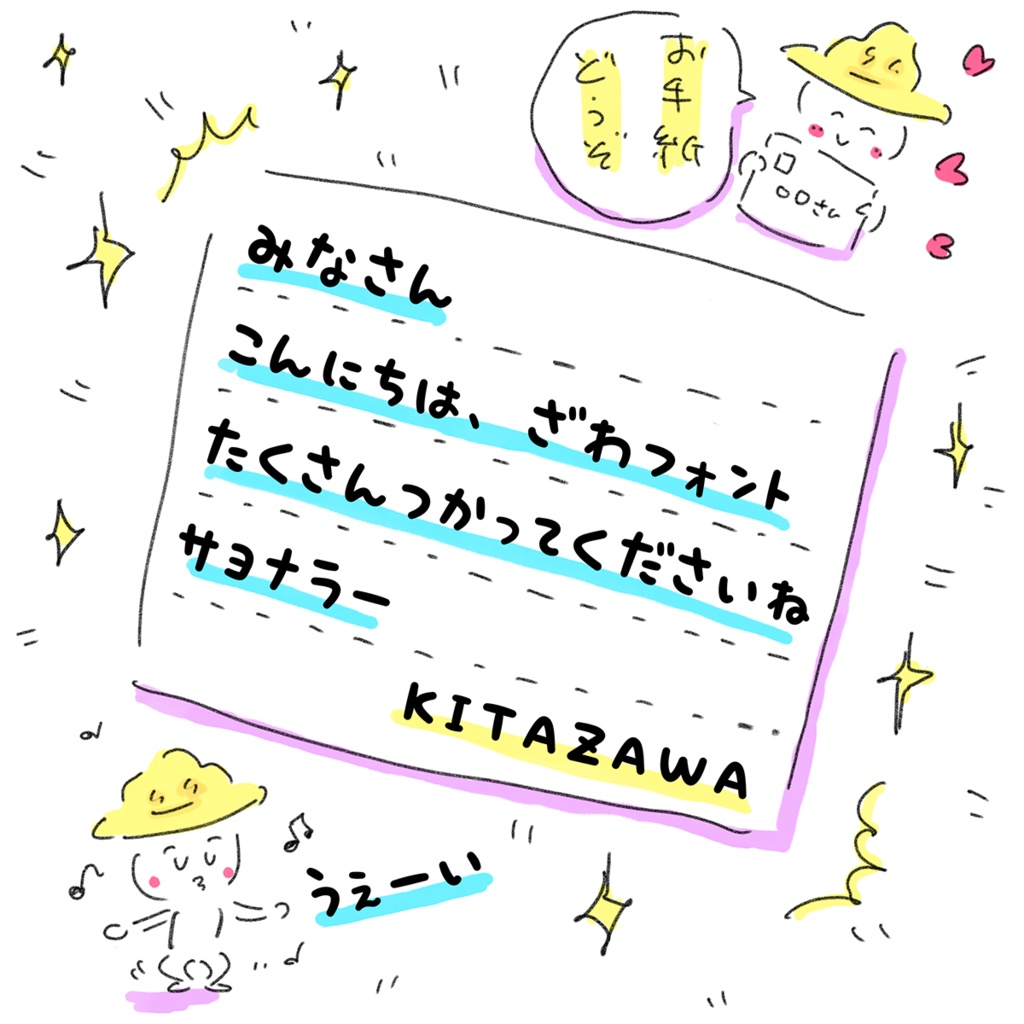 お手紙
どうぞ
〇〇さん
みなさん
こんにちは、ざわフォント
たくさんつかってくださいね
サヨナラー
KITAZAWA
うぇーい